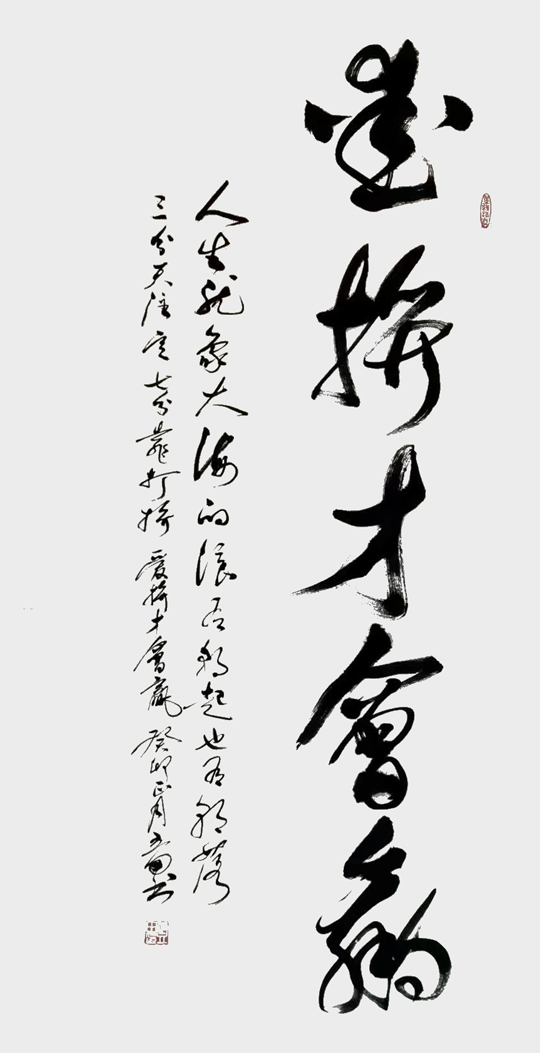 愛拚才會贏
人生就象大海的浪有朝起也有朝落
三分天注定七分靠打拚愛拚才會贏癸卯正月